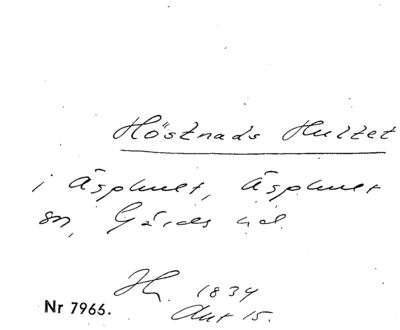 Höstnads Hultet
i Äsphult, Äsphult
sn, Gärds hd.
Hh. 1834
Akt 15.
Nr 7966.